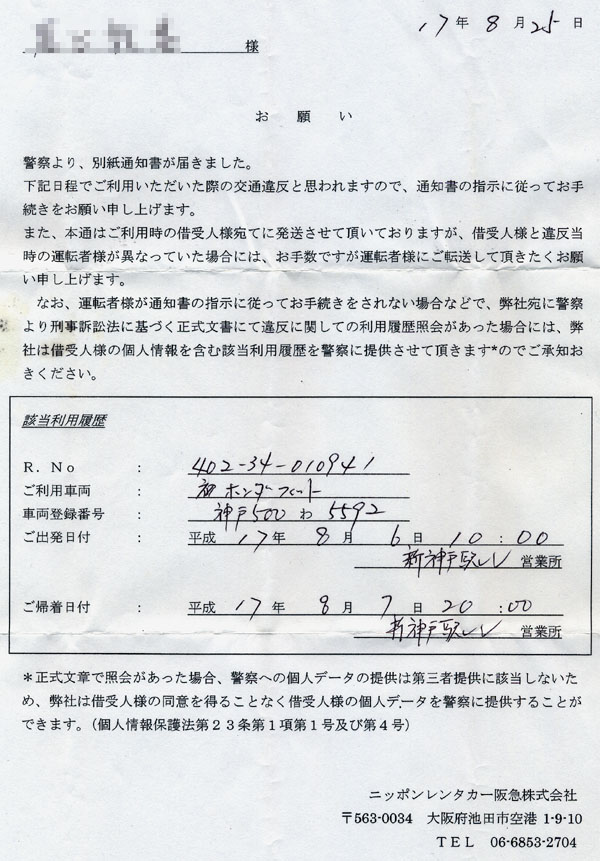 17年 8月25日
様
お 願 い
警察より、別紙通知書が届きました。
下記日程でご利用いただいた際の交通違反と思われますので、通知書の指示に従ってお手
続きをお願い申し上げます。
また、本通はご利用時の借受人様宛てに発送させて頂いておりますが、借受人様と違反当
時の運転者様が異なっていた場合には、お手数ですが運転者様にご転送して頂きたくお願
い申し上げます。
なお、運転者様が通知書の指示に従ってお手続きをされない場合などで、弊社宛に警察
より刑事訴訟法に基づく正式文書にて違反に関しての利用履歴照会があった場合には、弊
社は借受人様の個人情報を含む該当利用履歴を警察に提供させて頂きます*のでご承知お
きください。
該当利用履歴
R. No : 402-34-010941
ご利用車両 : ホンダフィット
車両登録番号 : 神戸500 わ 5592
ご出発日付 : 平成 17年 8月 6日 10:00
新神戸駅 営業所
ご帰着日付 : 平成 17年 8月 7日 20:00
新神戸駅 営業所
*正式文章で照会があった場合、警察への個人データの提供は第三者提供に該当しないた
め、弊社は借受人様の同意を得ることなく借受人様の個人データを警察に提供することが
できます。（個人情報保護法第23条第1項第1号及び第4号）
ニッポンレンタカー阪急株式会社
〒563-0034 大阪府池田市空港 1-9-10
TEL 06-6853-2704